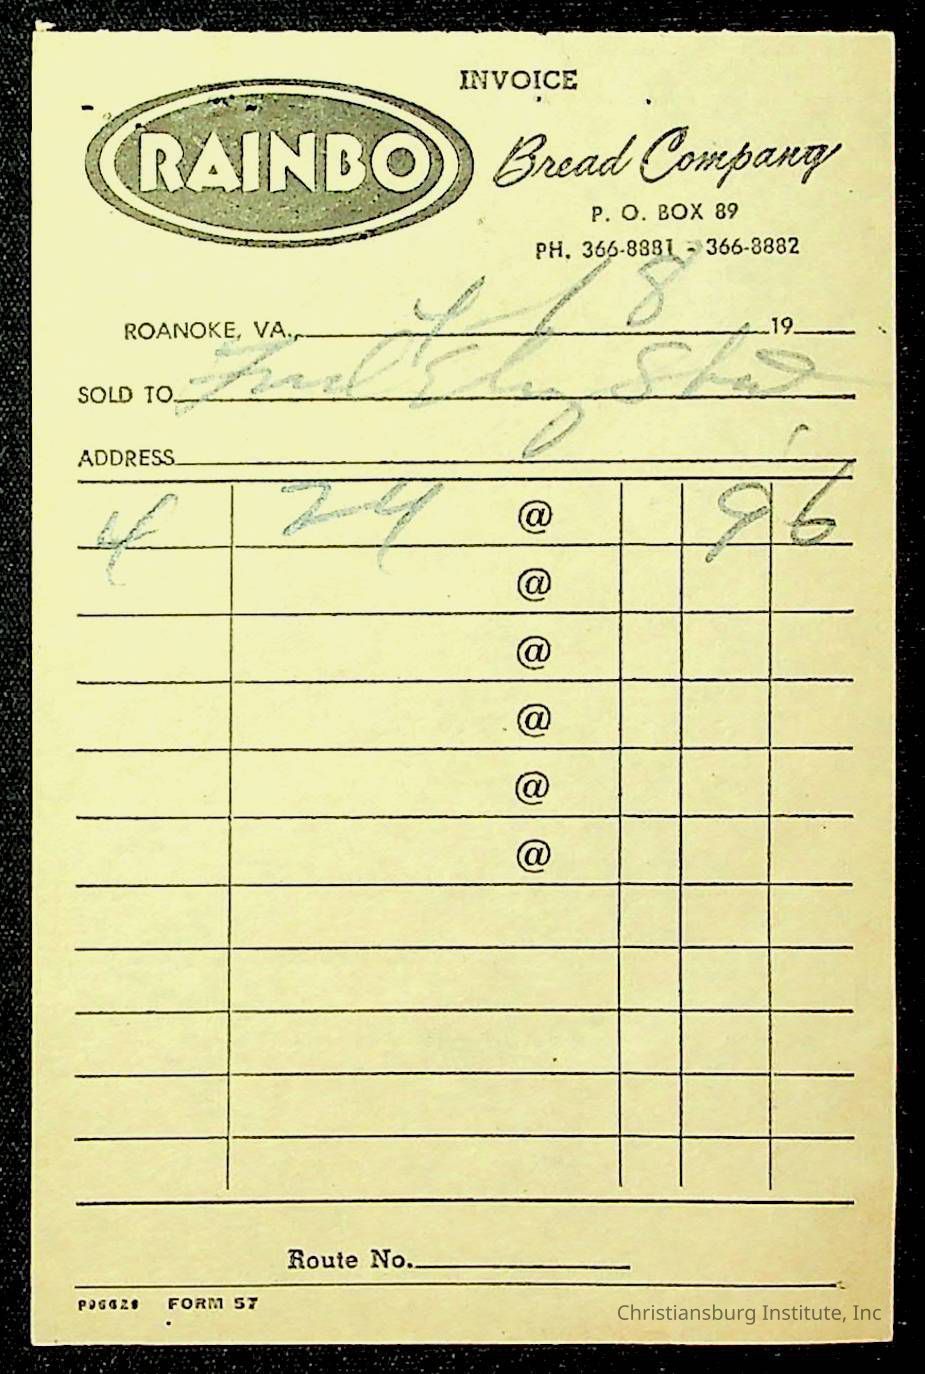 INVOICE
RAINBO Bread Company
P. O. BOX 89
PH. 366-8881 - 366-8882
ROANOKE, VA., 4-18 19
SOLD TO
ADDRESS
4 24 @ 96
@
@
@
@
@
Route No.
FORM 57
Christiansburg Institute, Inc